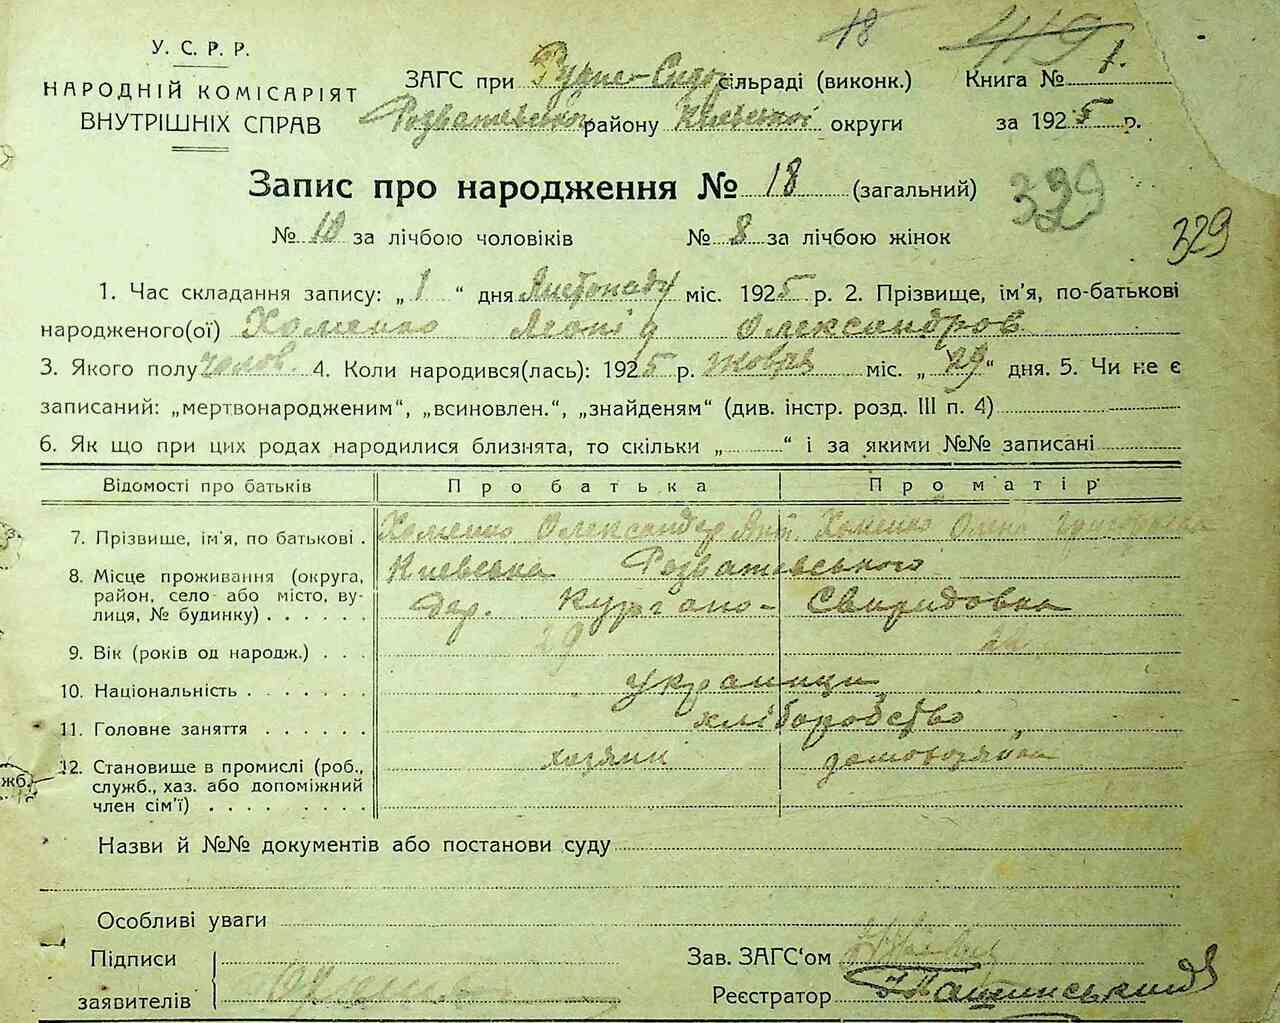 18
419
У. С. Р. Р.
НАРОДНІЙ КОМІСАРІЯТ
ВНУТРІШНІХ СПРАВ
ЗАГС при сільраді (виконк.) Книга № 1.
Розважевського району Київської округи за 1925 р.
Запис про народження № 18 (загальний)
329
329
№ 10 за лічбою чоловіків № 8 за лічбою жінок
1. Час складання запису: „ 1 “ дня Листопаду міс. 1925 р. 2. Прізвище, ім'я, по-батькові
народженого(ої) Хоменко Леонід Олександров
3. Якого полу чолов. 4. Коли народився(лась): 1925 р. жовтня міс. „ 29 “ дня. 5. Чи не є
записаний: „мертвонародженим“, „всиновлен.“, „знайденям“ (див. інстр. розд. III п. 4)
6. Як що при цих родах народилися близнята, то скільки „ “ і за якими №№ записані
Відомості про батьків Про батька Про матір
7. Прізвище, ім'я, по батькові . Хоменко Олександер Хоменко Олена
8. Місце проживання (округа, Киевська Розважевського
район, село або місто, ву-
лиця, № будинку) . . . . . . Дер. Свиридовка
9. Вік (років од народж.) . . . 29
10. Національність . . . . . . . українци
11. Головне заняття . . . . . . хліборобство
12. Становище в промислі (роб., хозяин домохозяйка
служб., хаз. або допоміжний
член сім'ї) . . . . . . . .
жб.
Назви й №№ документів або постанови суду
Особливі уваги
Підписи
заявителів
Зав. ЗАГС‘ом
Реєстратор